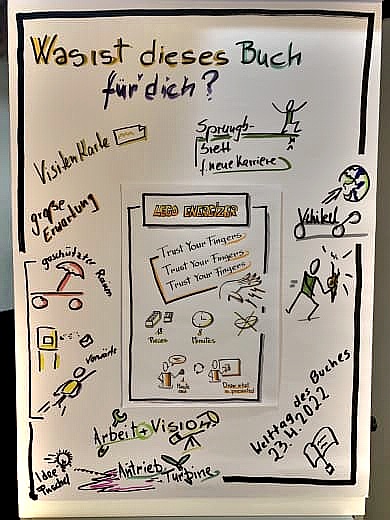 Was ist dieses Buch
für dich?
Visitenkarte
Sprung-
brett
f. neue Karriere
große
Erwartung
Vehikel
geschützter Raum
vorwärts
LEGO ENERGIZER
Trust Your Fingers
Trust Your Fingers
Trust Your Fingers
Pieces
Minutes
Arbeit + Vision
Welttag des Buches
23.4.2022
Idee
Antrieb
Turbine